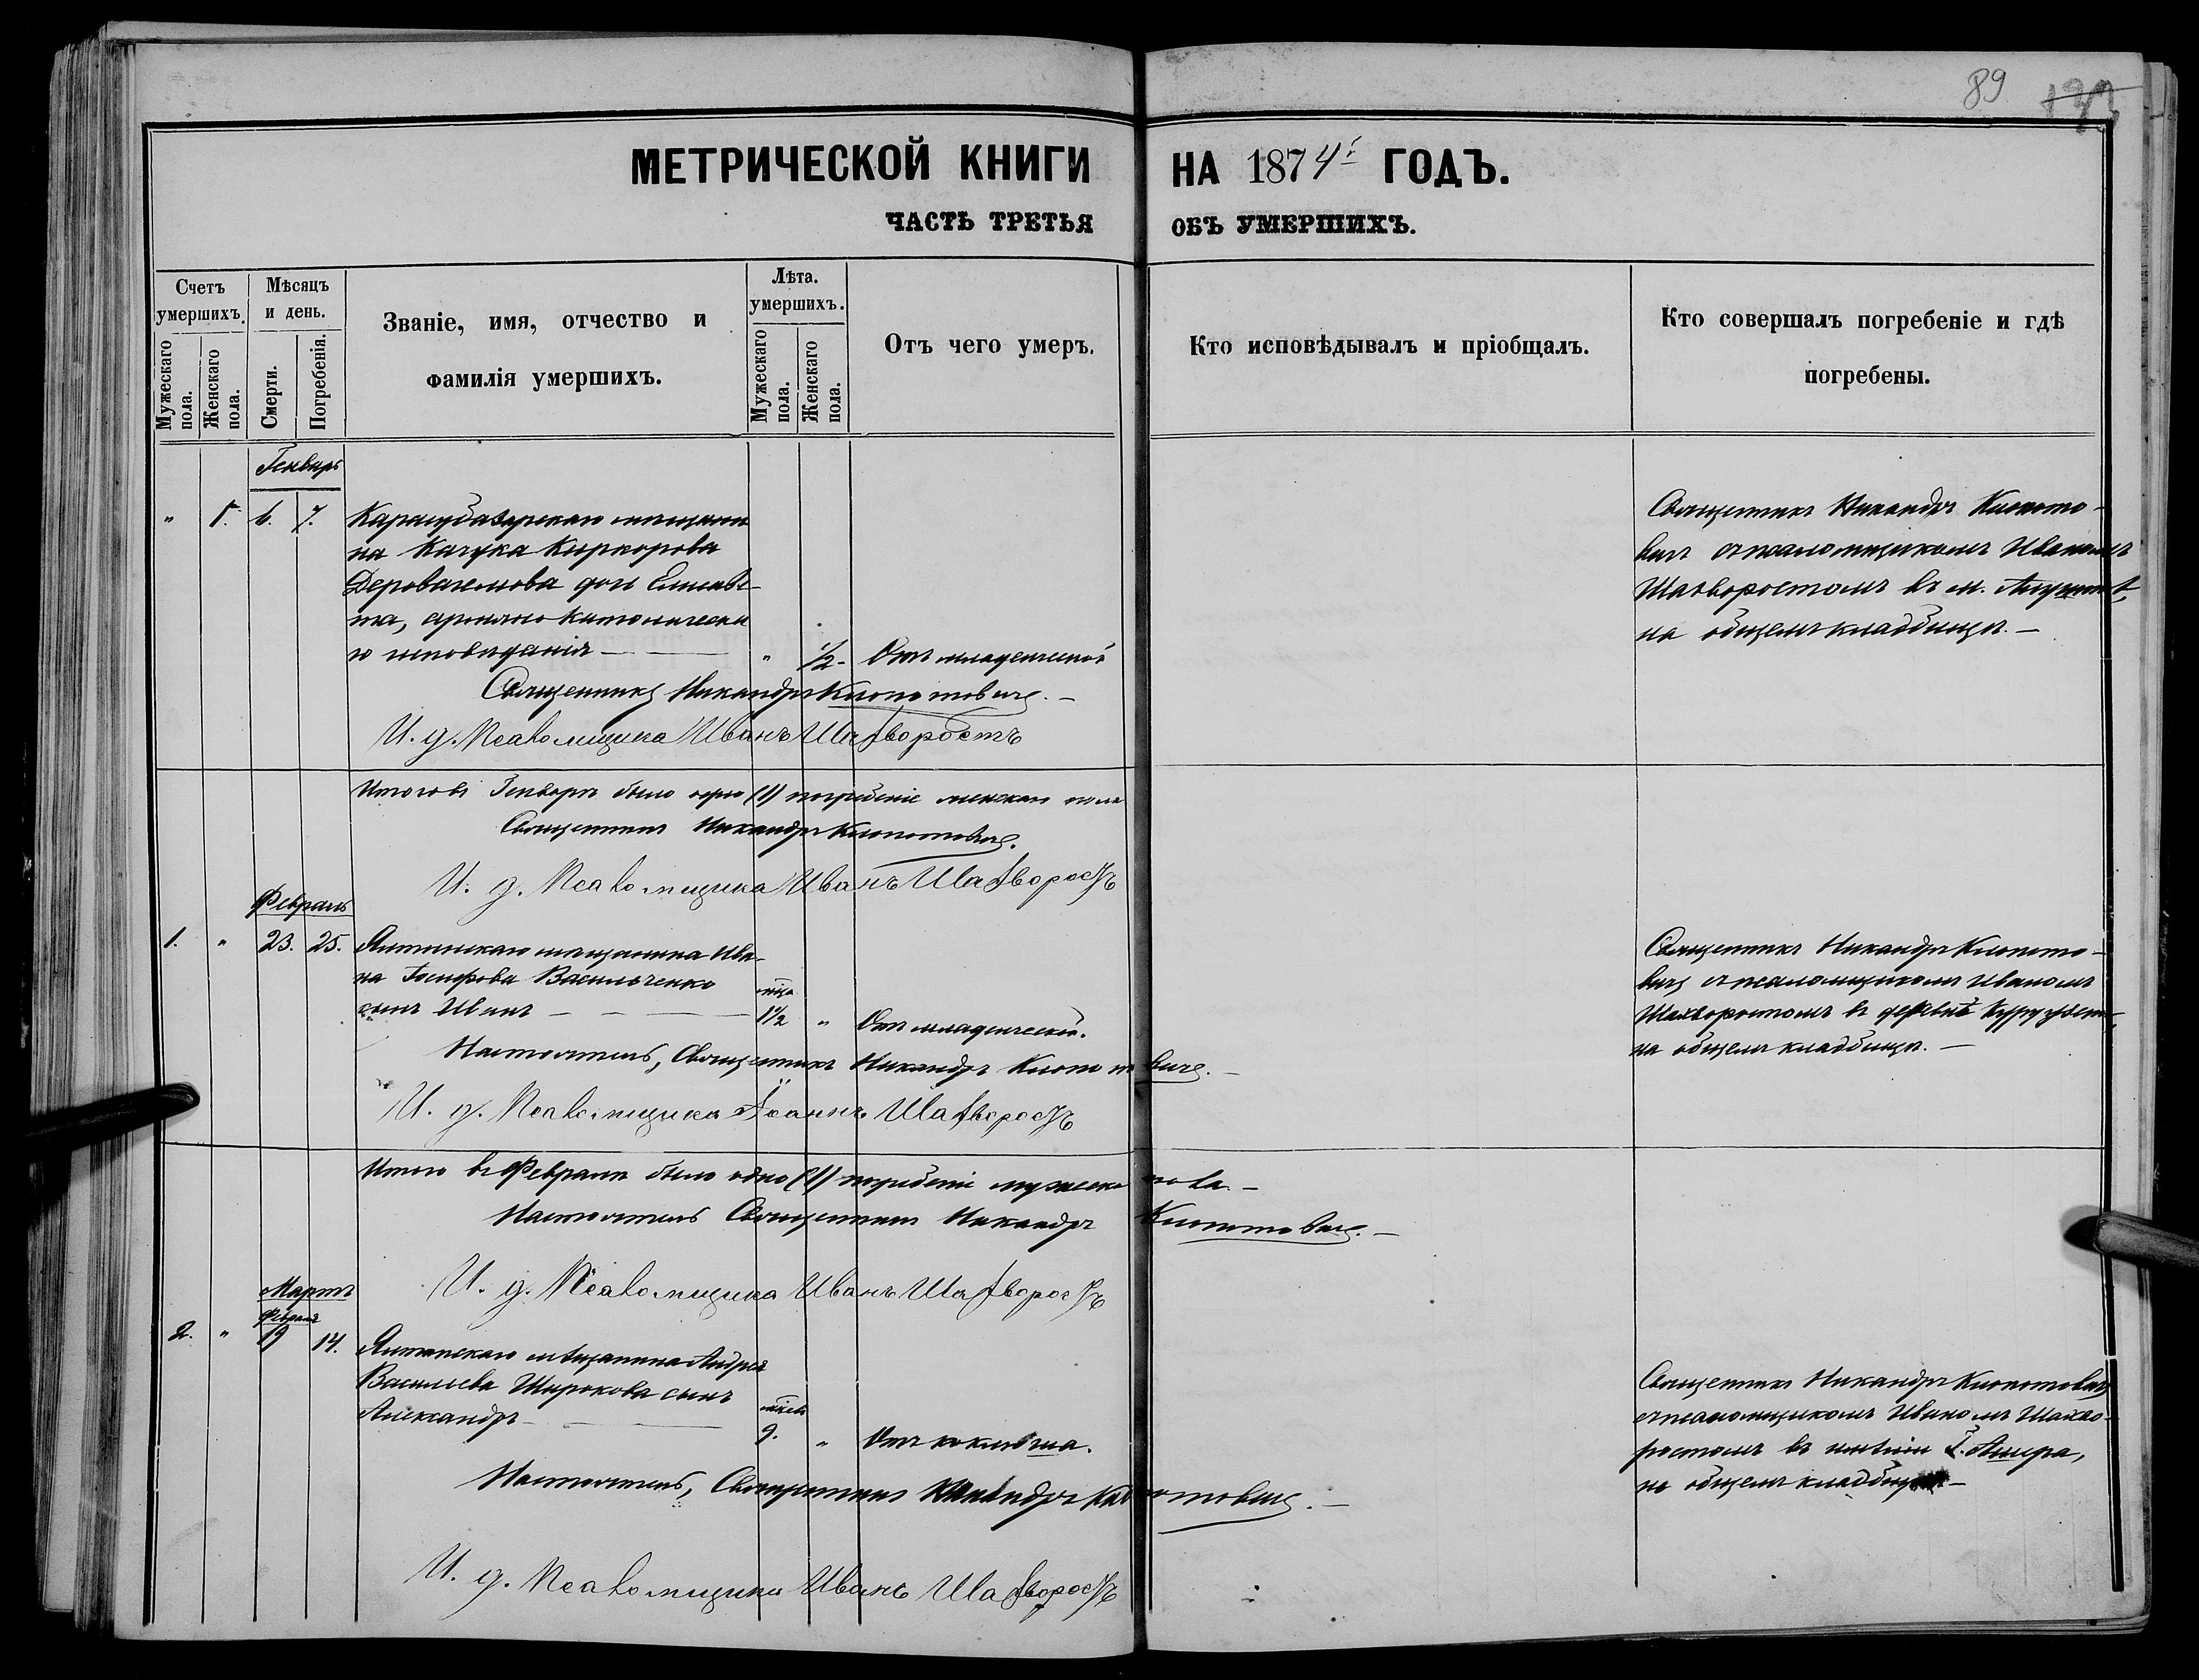 89
МЕТРИЧЕСКОЙ КНИГИ НА 1874й ГОДЪ.
ЧАСТЬ ТРЕТЬЯ ОБЪ УМЕРШИХЪ.
Счетъ умершихъ.
Мужескаго пола.
Женскаго пола.
Мѣсяцъ и день.
Смерти.
Погребенія.
Званіе, имя, отчество и
фамилія умершихъ.
Лѣта.
умершихъ.
Мужескаго пола.
Женскаго пола.
Отъ чего умеръ.
Кто исповѣдывалъ и пріобщалъ.
Кто совершалъ погребеніе и гдѣ
погребены.
Генварь
" 1. 6. 7. Карасубазарскаго мещани
на Качука Киркорова
дочь Елисаве-
та, армяно католическа
го исповеданія — " 1/2 Отъ младенческой
Священникъ Никандръ Клопото-
вичъ съ псаломщикомъ Иваномъ
Шахворостомъ въ м. Алуштѣ,
на общемъ кладбищѣ. —
Священникъ Никандръ Клопотовичъ. —
И. д. Псаломщика Иванъ Шахворостъ
Итого въ Генварѣ было одно (1) погребеніе женскаго пола
Священникъ Никандръ Клопотовичъ.
И. д. Псаломщика Иванъ Шахворостъ
Февраль
1. " 23. 25. Ялтинскаго мещанина Ива-
на Іосифова Васильченко
сынъ Иванъ — — — мѣся
1 1/2 " Отъ младенческой.
Священникъ Никандръ Клопото-
вичъ съ псаломщикомъ Иваномъ
Шахворостомъ въ деревнѣ
на общемъ кладбищѣ. —
Настоятель, Священникъ Никандръ Клопотовичъ. —
И. д. Псаломщика Іоаннъ Шахворостъ
Итого въ Февралѣ было одно (1) погребеніе мужеска пола. —
Настоятель Священникъ Никандръ Клопотовичъ. —
И. д. Псаломщика Иванъ Шахворостъ
Мартъ
Февраль
2. " 19 14. Ялтинскаго мѣщанина Андрея
Васильева Широкова сынъ
Александръ — —
9. " Отъ коклюша.
Священникъ Никандръ Клопотовичъ
съ псаломщикомъ Иваномъ Шахво-
ростомъ въ имѣніи
на общемъ кладбищѣ —
Настоятель, Священникъ Никандръ Клопотовичъ. —
И. д. Псаломщика Иванъ Шахворостъ